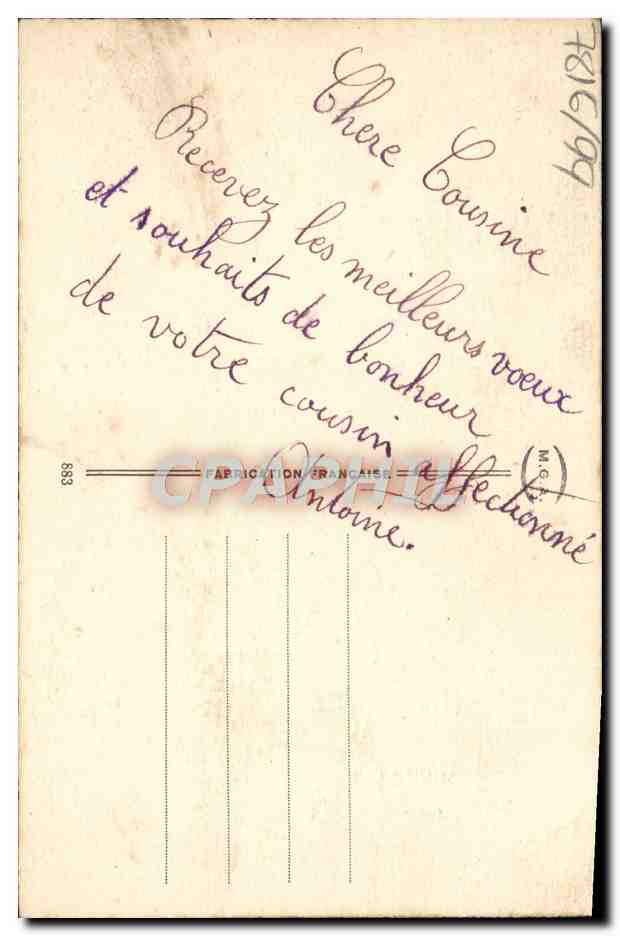 7816/99
Chere Cousine
Recevez les meilleurs vœux
et souhaits de bonheur
de votre cousin affectionné
Antoine.
883
FABRICATION FRANÇAISE
CPAPHIL